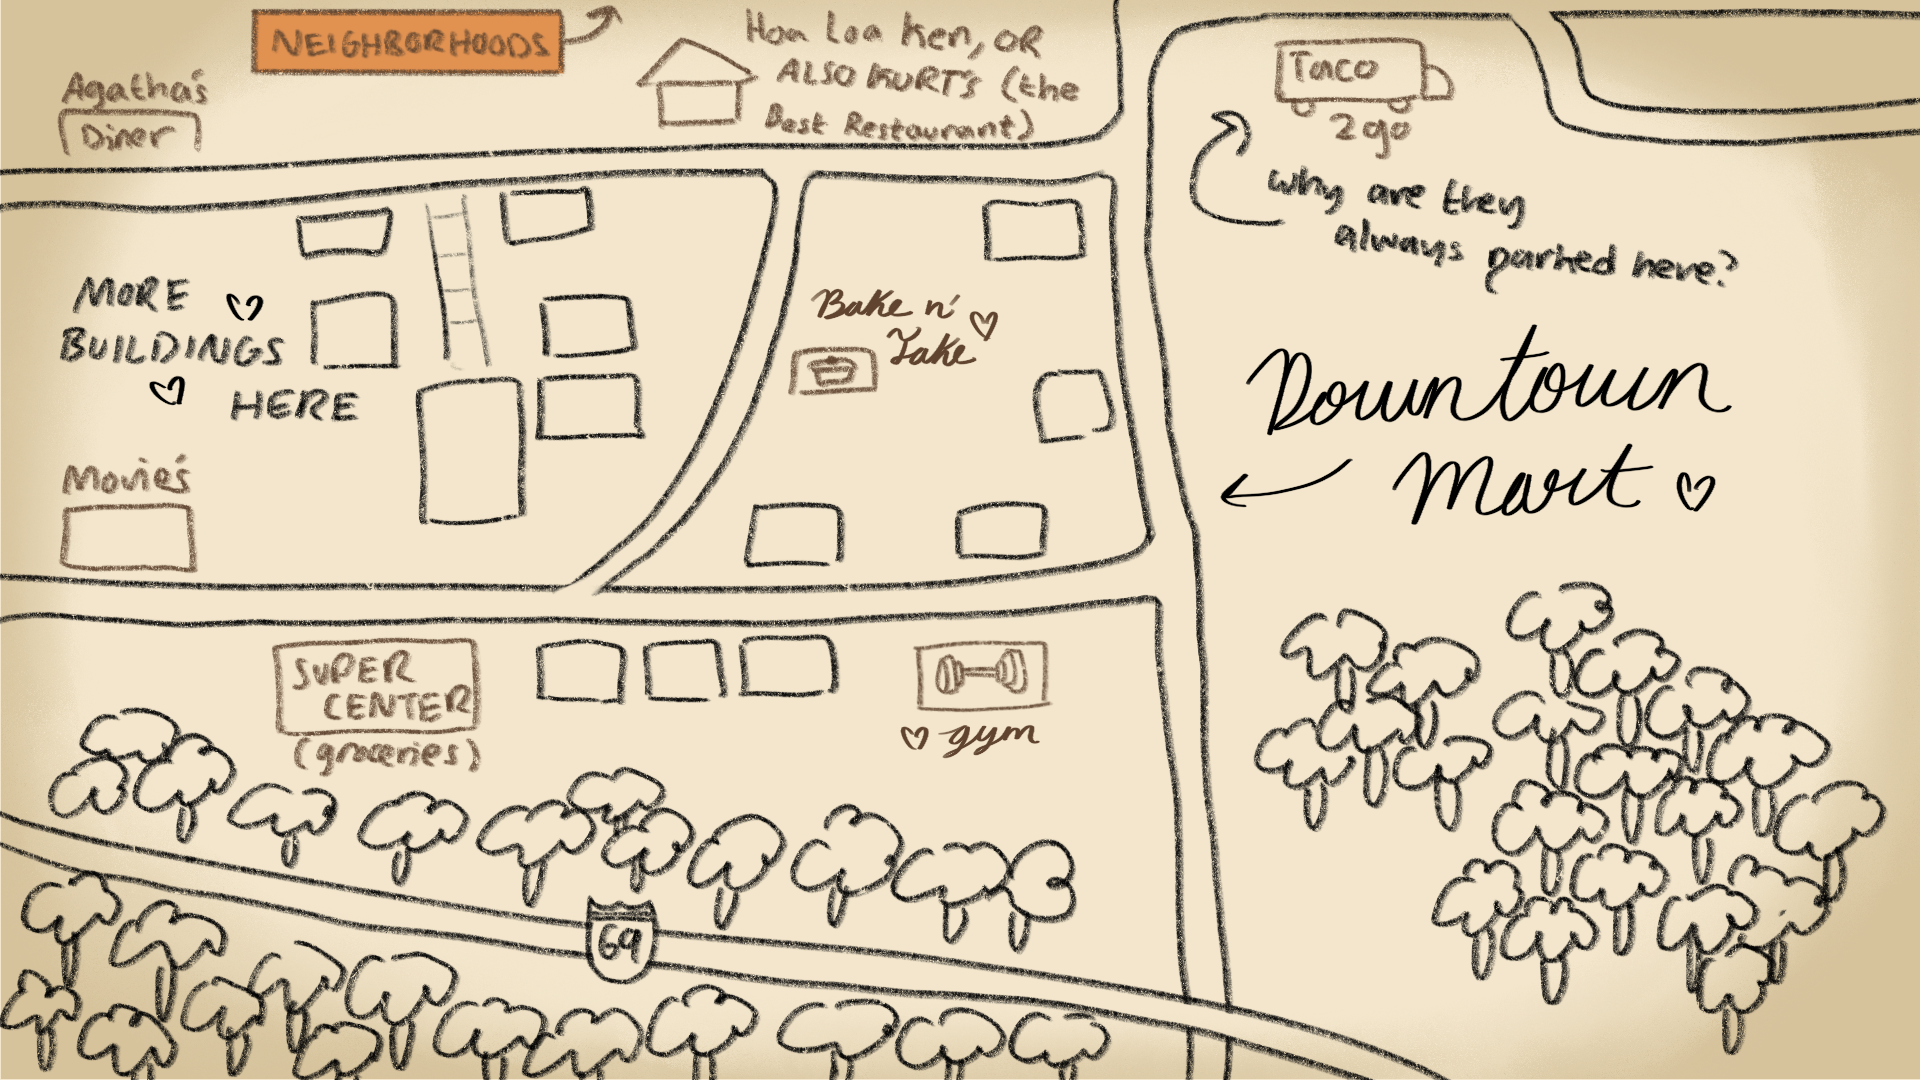 NEIGHBORHOODS
Agatha's
Diner
Hoa Loa Ken, OR
ALSO KURT'S (the
Best Restaurant)
Taco
2go
why are they
always parked here?
MORE
BUILDINGS
HERE
Bake n'
Take
Downtown
Mart
Movie's
SUPER
CENTER
(groceries)
gym
69